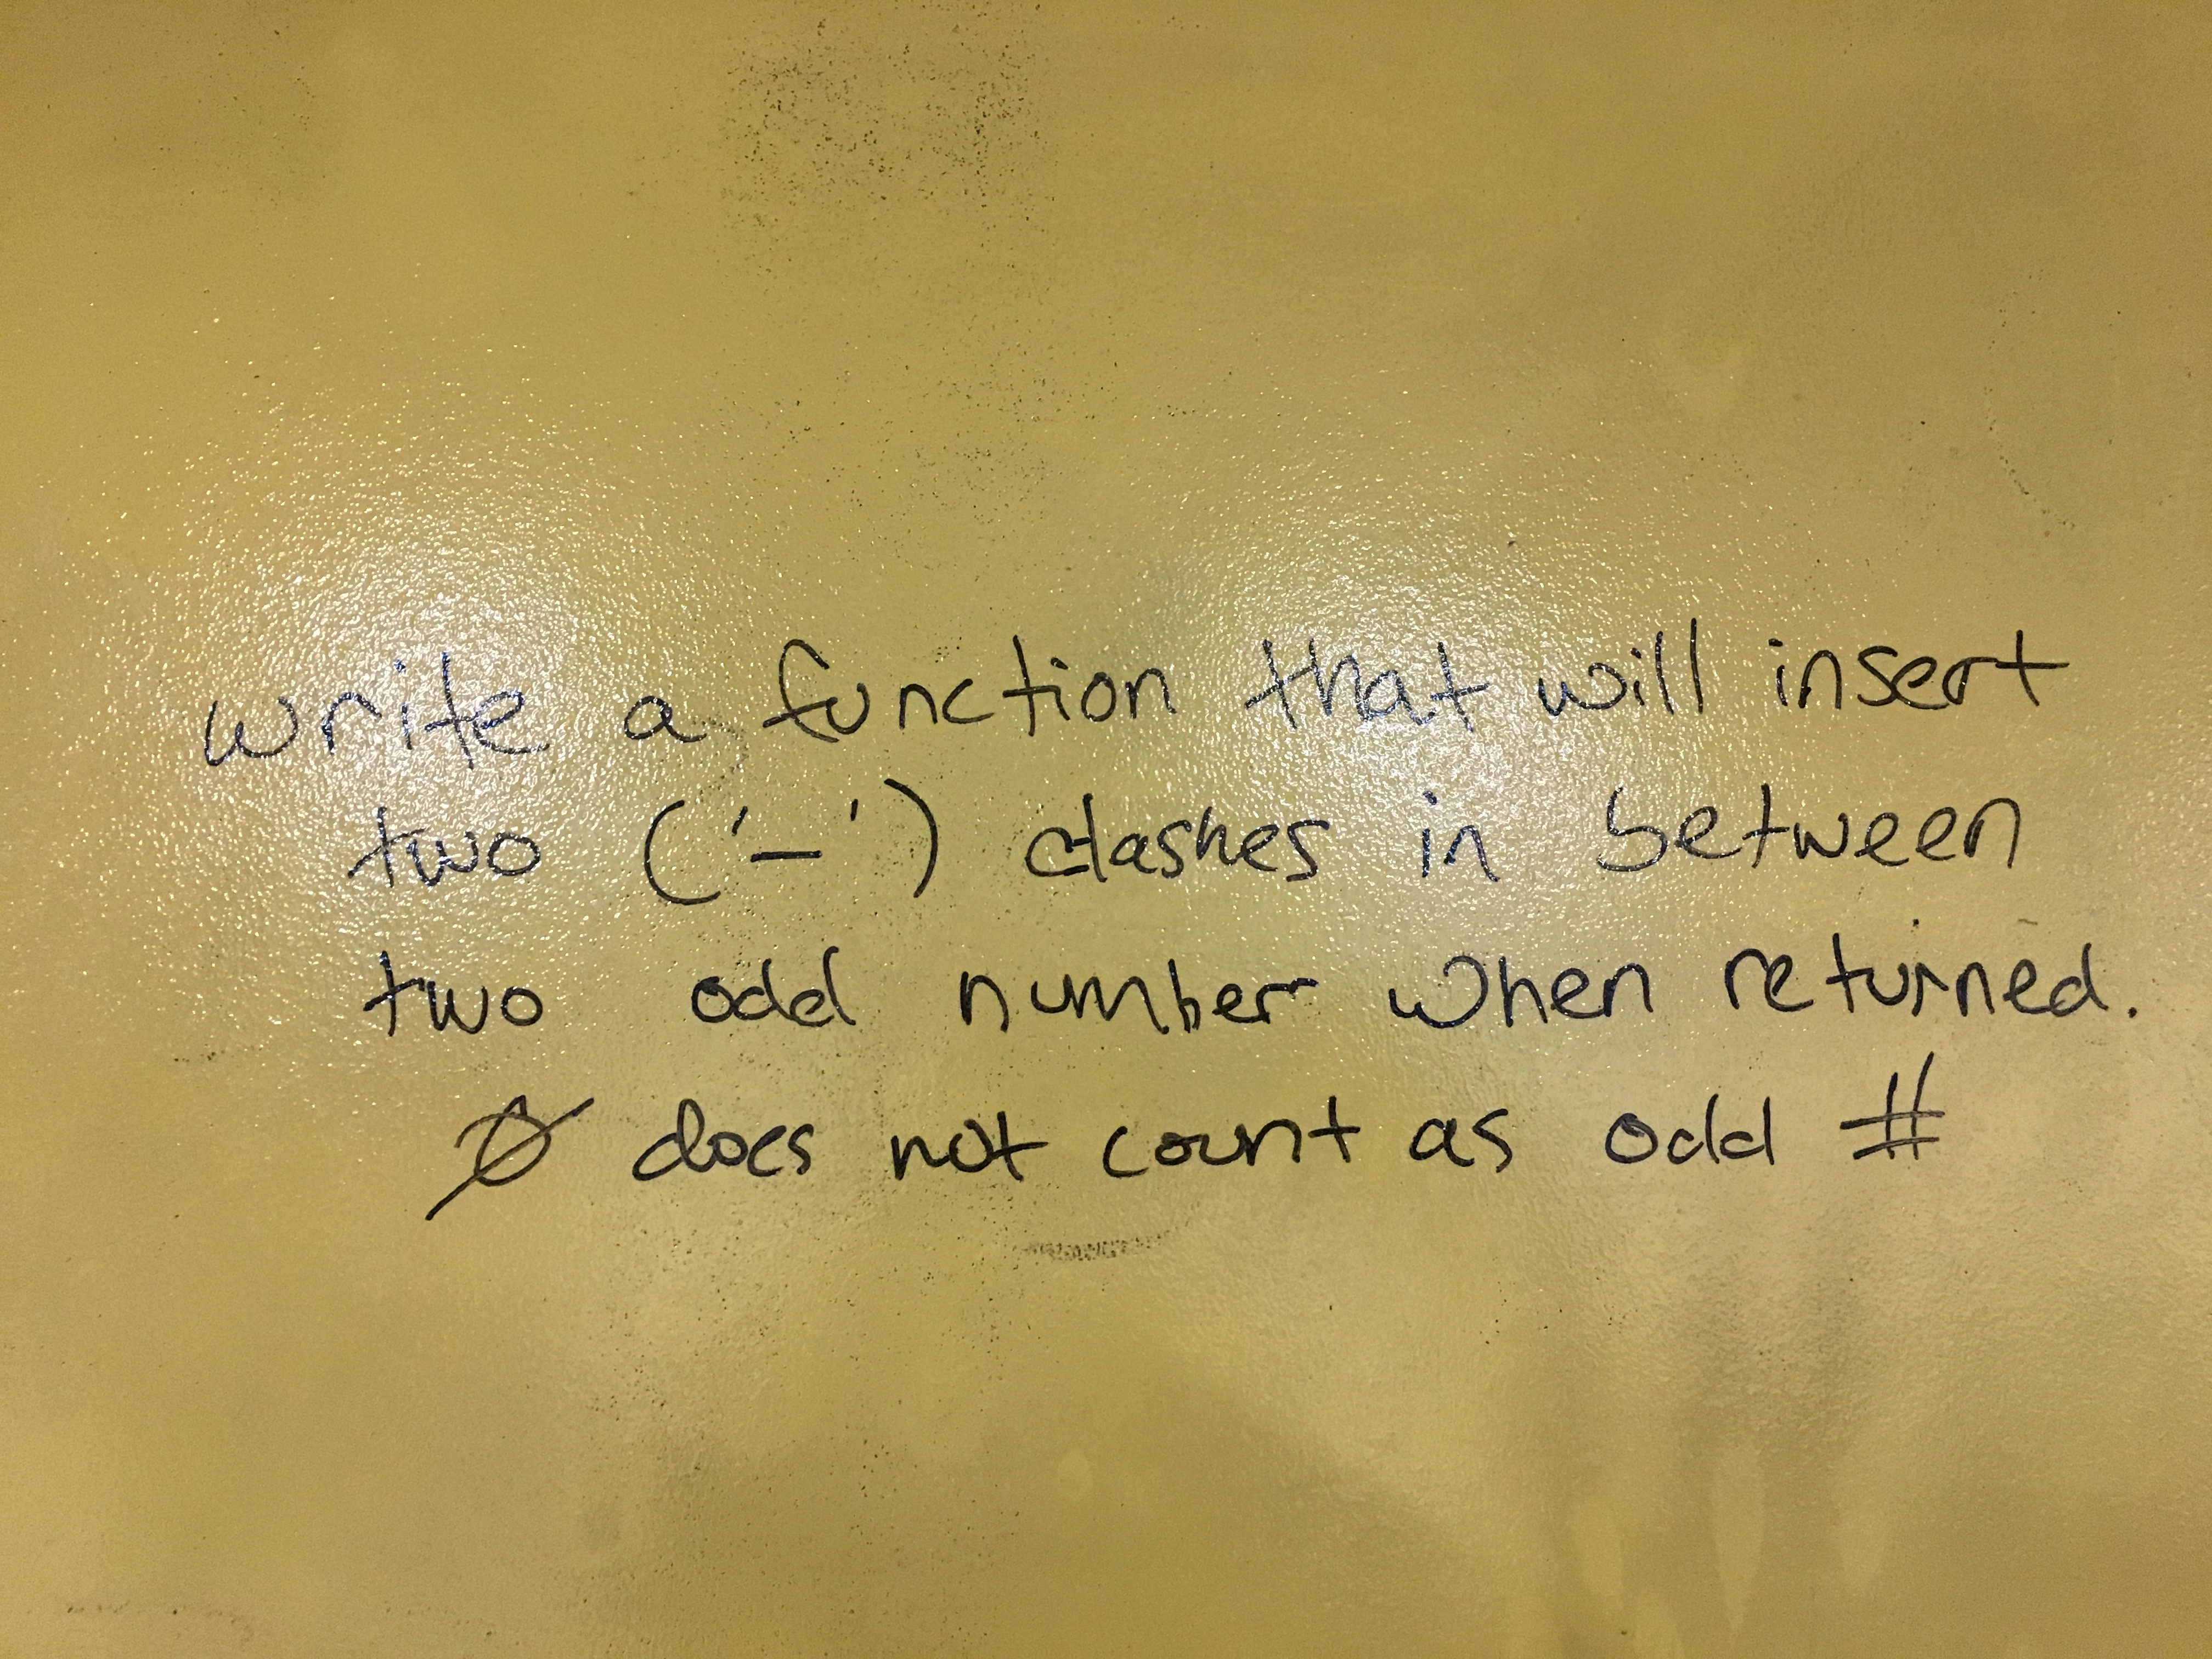 write a function that will insert
two ('-') dashes in between
two odd number when returned.
0 does not count as odd #